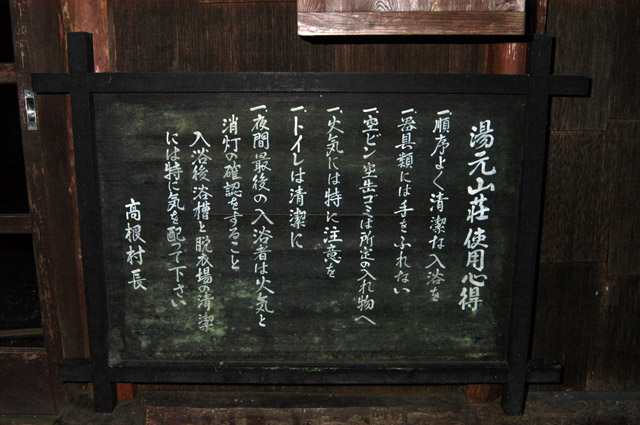 湯元山荘使用心得
一、順序よく清潔な入浴を
一、器具類には手をふれない
一、空ビン空缶ゴミは所定の入れ物へ
一、火気には特に注意を
一、トイレは清潔に
一、夜間最後の入浴者は火気と
消灯の確認をすること
入浴後浴槽と脱衣場の清潔
には特に気を配って下さい
高根村長